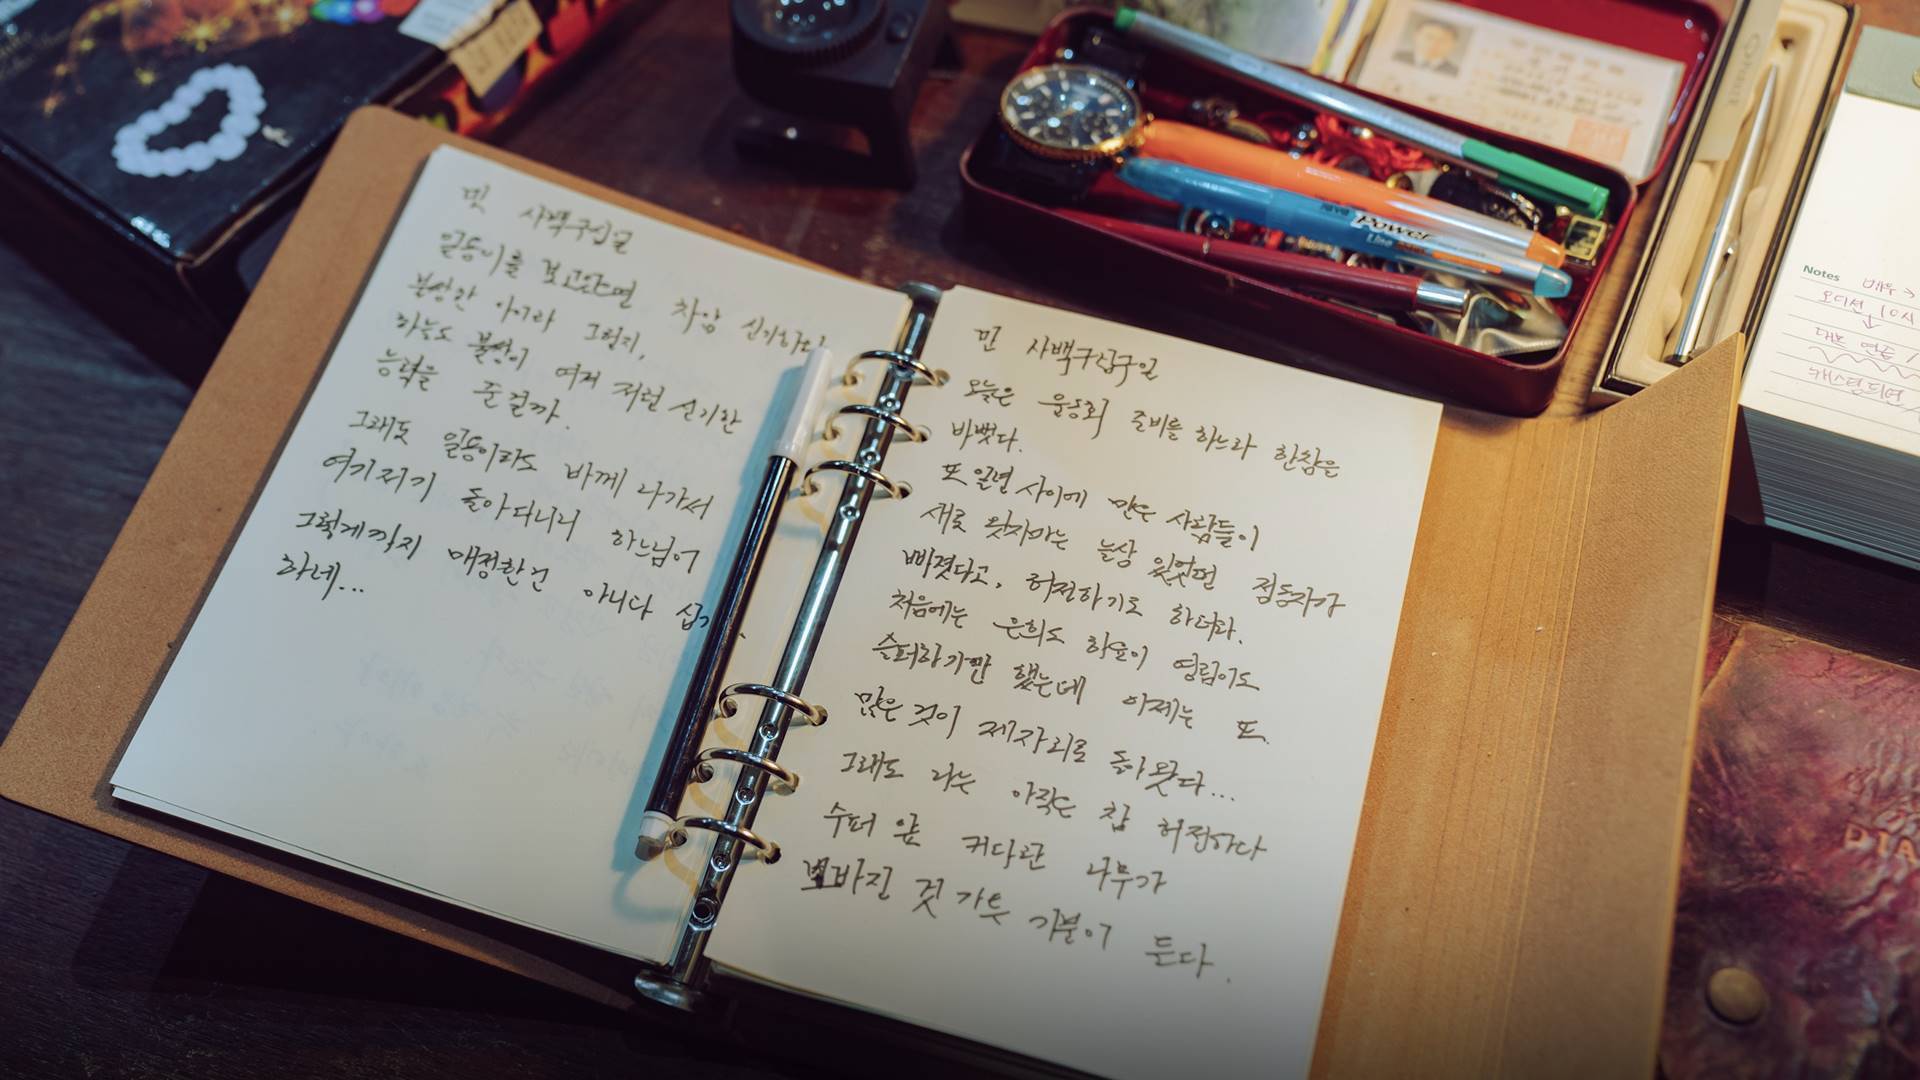 사백구십일
일등이를 보고있으면 차암 신기하다
불쌍한 아이라 그렇지,
하늘도 불쌍히 여겨 저런 신기한
능력을 준걸까.
그래도 일등이라도 바께 나가서
여기저기 돌아다니니 하느님이
그렇게까지 매정한건 아니다
하네...
민 사백구십구일
오늘은 운동회 준비를 하느라 한참을
바빴다.
또 일년 사이에 많은 사람들이
새로 왔지마는 늘상 있었던 점동자가
빠졌다고, 허전하기도 하더라.
처음에는 은희도 하율이 영림이도
슬퍼하기만 했는데 이제는 또
많은 것이 제자리로 돌아왔다...
그래도 나는 아직은 참 허전하다
수퍼 앞 커다란 나무가
뽑바진 것 가튼 기분이 든다.
Java Power Line
Notes 배우 →
오디션 10시
대본 연습
캐스팅되면
DIA